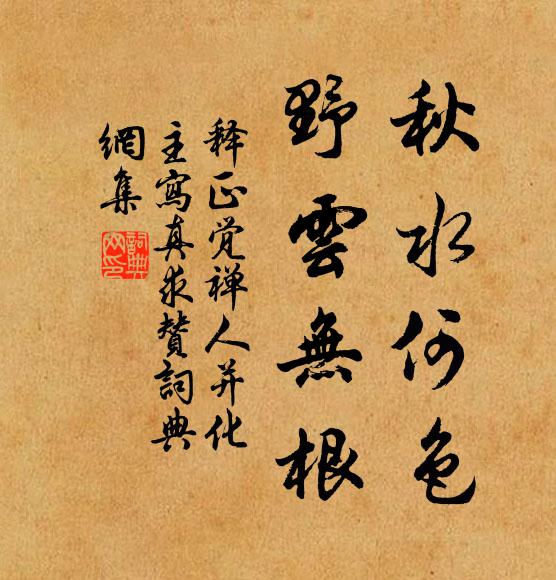 秋水何色
野雲無根
释正觉禅人并化
主寫真求贊詞典
網集
詞典网印